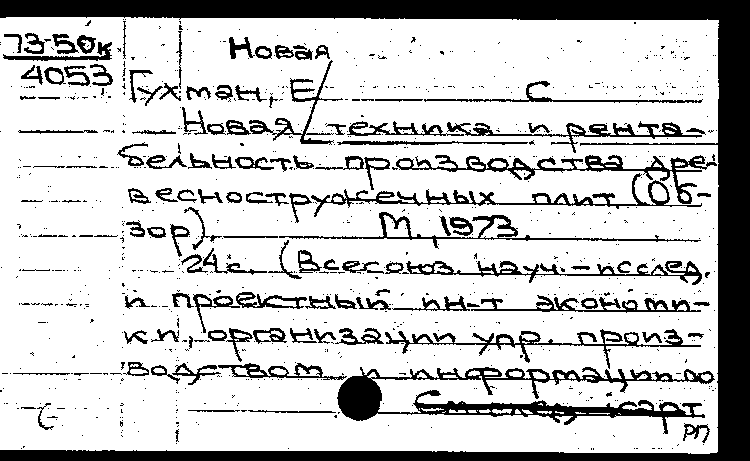 73-50к
4053
Новая
Гухман, Е С
Новая техника и рента-
бельность производства дре-
весностружечных плит. (Об-
зор). М., 1973.
24 с. (Всесоюз. науч.-исслед.
и проектный ин-т экономи-
ки, организации упр. произ-
водством и информации по
См. след. карт
РП